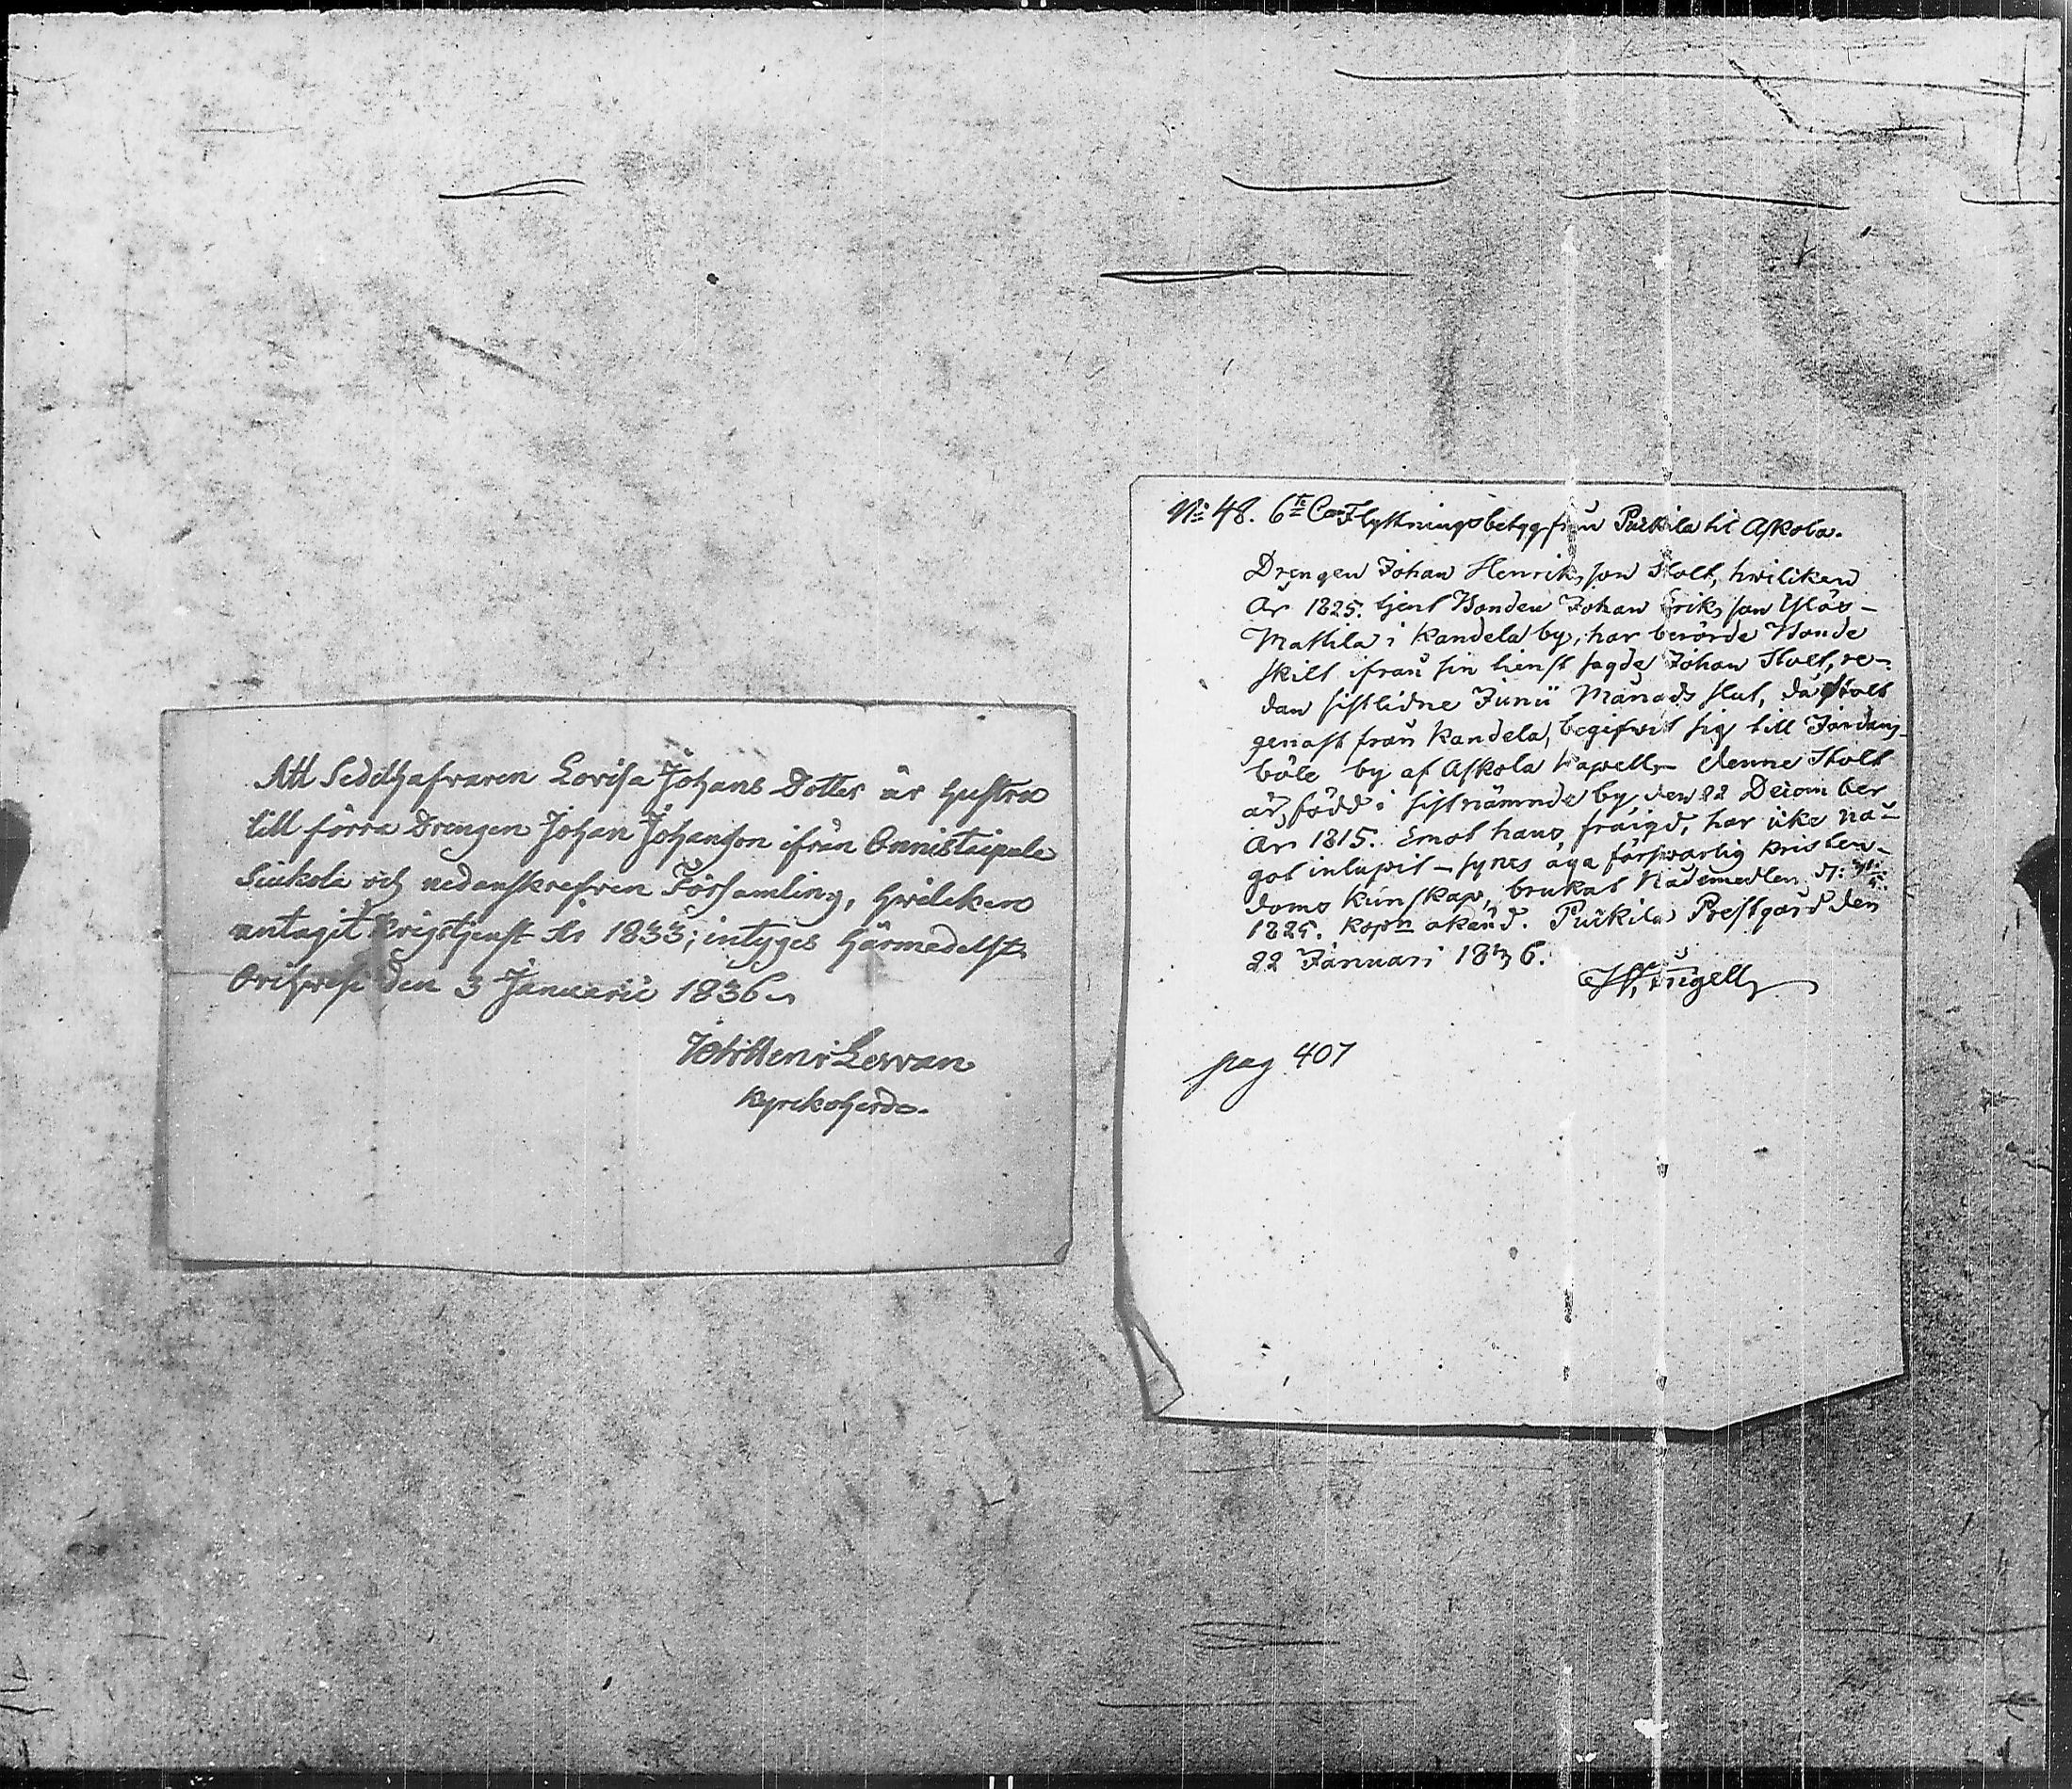 Att Sedelhafwaren Lovisa Johans Dotter är hustru
till förra Drengen Johan Johansson ifrån Onnistaipale
Siukola och nedanskrefven Församling, hwilcken
antagit Krigstjenst År 1833; intyges härmedelst.
Orihwesi den 3 Januarii 1836.
Kyrckoherde.
No 48. 6te Flyttningsbetyg från Pukkila til Askola.
Drengen Johan Henriksson Stolt, hwilcken
År 1825. tjent Bonden Johan Eriksson
Mattila i Kandela by, har berörde Bonde
skilt ifrån sin tienst sagde Johan Stolt, re-
dan sistlidne Junii Månads slut, då Stolt
genast från Kandela, begifwit sig till Jordans-
böle by af Askola Kapell. Denne Stolt
är född i sistnämnde by den 22 December
År 1815. Emot hans fräigd, har icke nå-
got inlupit - synes äga försvarlig kristen-
doms kunskap, brukat Nådemedlen
1825. Kopn okänd. Pukkila Prestgård den
22 Januari 1836.
pag 407